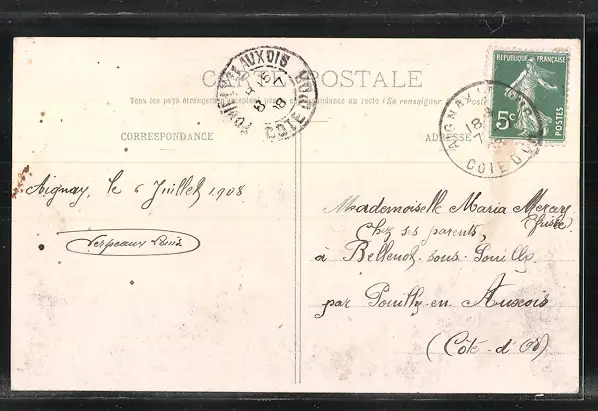 CARTE POSTALE
Tous les pays étrangers n'acceptent pas la correspondance au recto (Se renseigner à la Poste)
CORRESPONDANCE
ADRESSE
REPUBLIQUE FRANÇAISE
5c
POSTES
AUXOIS
COTE D'OR
AIGNAY
COTE D'OR
Aignay, le 6 Juillet 1908
Serpeaux Louis
Mademoiselle Maria
Chez ses parents,
à Bellenot-sous-Pouilly
par Pouilly-en Auxois
(Côte-d'Or)